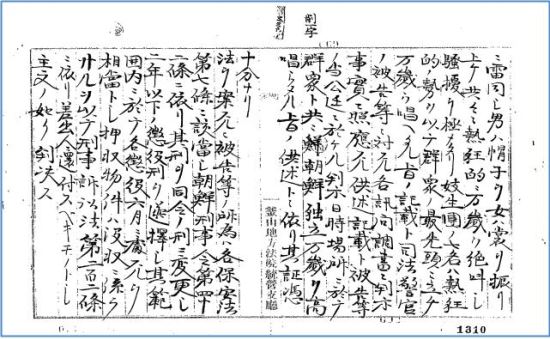 削一字
雷同シ男ハ帽子ヲ女ハ裳ヲ振リ
上ケ共ニ熱狂的ニ万歳ヲ絶叫シ
騒擾ヲ極メタリ妓生團七名ハ熱狂
的ノ勢ヲ以テ群衆ノ最先頭ニ立チ
万歳ヲ唱ヘタル旨ノ記載ト司法警官
ノ被告等ニ対スル各訊問調書ニ判示
事實ニ照應スル供述記載ト被告等
当公廷ニ於テ判示日時場所ニ於テ
群衆ト共ニ朝鮮獨立万歳ヲ高
唱シタル旨ノ供述トニ依リ其証憑
釜山地方法院統營支廳
十分ナリ
法ヲ案スルニ被告等ノ所為ハ各保安法
第七條ニ該當シ朝鮮刑事令第四十
二條ニ依リ其刑ヲ同令ノ刑ニ変更シ
二年以下ノ懲役刑ヲ選擇シ其範
囲内ニ於テ各懲役六月ニ處スルヲ
相當トシ押収物件ハ没収ニ係ラ
サルヲ以テ刑事訴訟法第二百二條
ニ依リ差出人ニ還付スヘキモノトシ
主文ノ如ク判決ス
1310